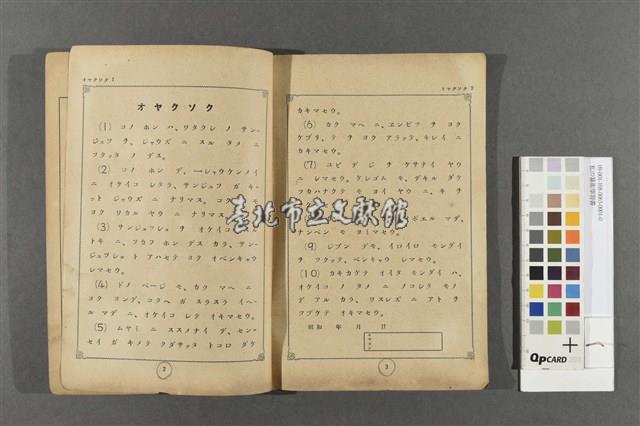 オヤクソク 1
オヤクソク
(1) コノ ホン ハ、ワタクシ ノ サン-
ジュツ ヲ、ジャウズ ニ スル タメ ニ
ツクッタ ノ デス。
(2) コノ ホン デ、一シャウケンメイ
ニ オケイコ シタラ、サンジュツ ガ キ-
ット ジャウズ ニ ナリマス。
ヨク ワカル ヤウ ニ ナリマス
(3) サンジュツ ヲ オケイコ
トキ ニ、ツカフ ホン デス カラ、サン-
ジュツ ト アハセテ ヨク オベンキャウ
シマセウ。
(4) ドノ ページ モ、カク マヘ ニ
ヨク ヨンデ、コタヘ ガ スラスラ イヘ-
ル マデ ニ、オケイコ シテ オキマセウ。
(5) ムヤミ ニ ススメナイ デ、セン-
セイ ガ キメテ クダサッタ トコロ ダケ
2
オヤクソク 2
カキマセウ。
(6) カク マヘ ニ、エンピツ ヲ ヨク
ケヅリ、テ ヲ ヨク アラッテ、キレイ ニ
カキマセウ。
(7) ユビ デ ジ ヲ ケサナイ ヤウ
ニ シマセウ。ケシゴム モ、デキル ダケ
ツカハナクテ モ ヨイ ヤウ ニ、キ ヲ
マデ、
ナンベン モ ヨミマセウ。
(9) ジブン デモ、イロイロ モンダイ
ヲ ツクッテ、ベンキャウ シマセウ。
(10) カキカケテ オイタ モンダイ ハ、
オケイコ ノ タメ ニ ノコシタ モノ
デ アル カラ、ワスレズ ニ アト ヲ
ツヅケテ オキマセウ。
昭和 年 月 日
3
臺北市立文獻館
QPCARD 201